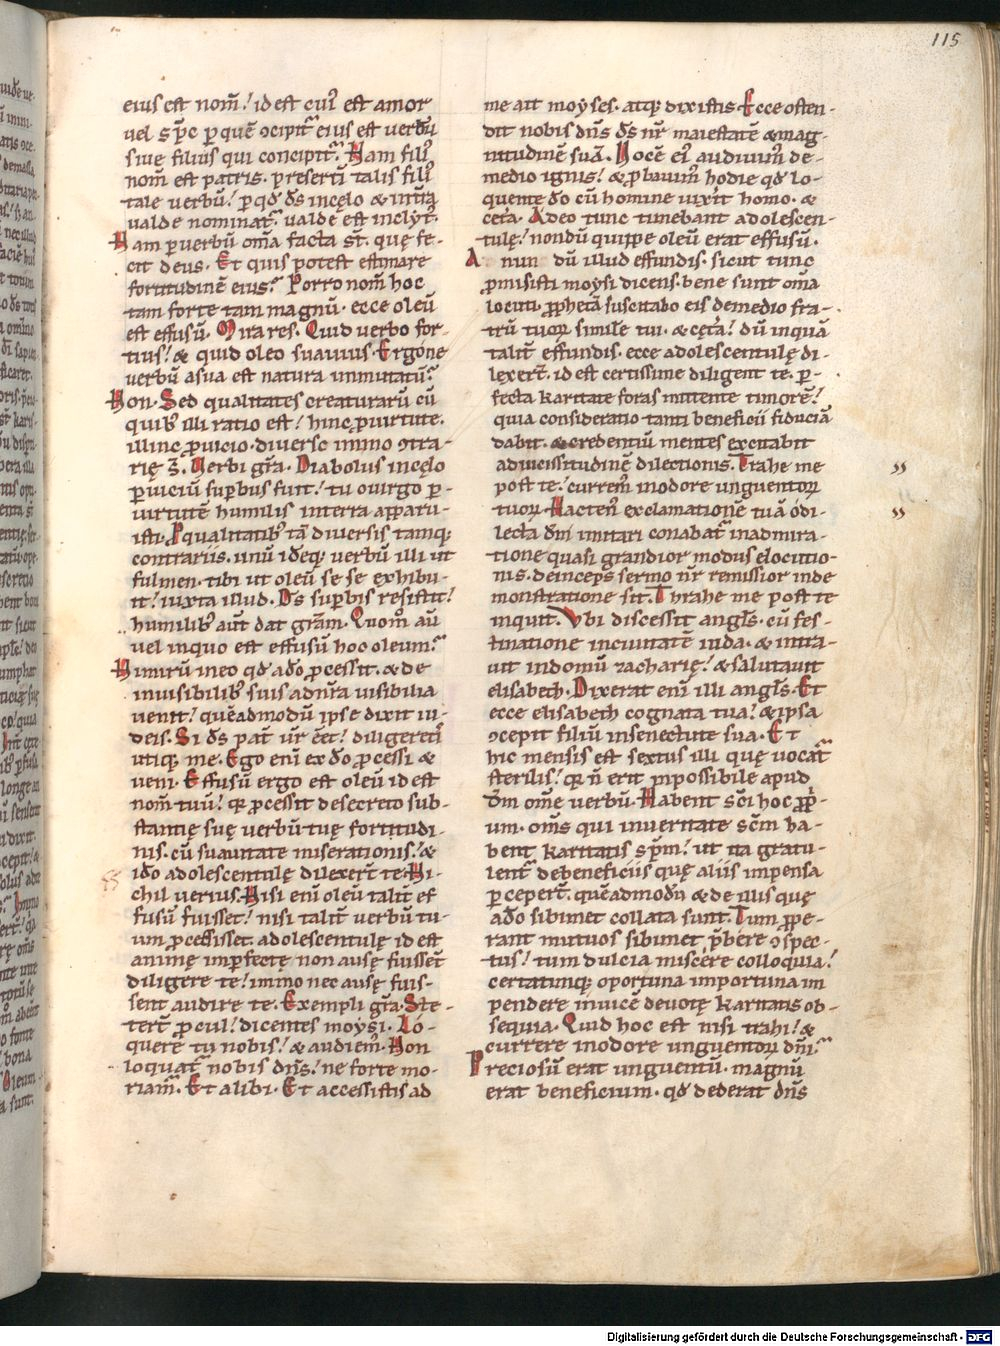 115
eius est nom̄. id est cui᷒ est amor
vel sp̄c ꝑ quē ↄcipit᷑ eius est verbū
sive filius qui concipit᷑. Nam filī
nom̄ est patris. presertī talis filī
tale verbū. ꝑ qd̄ ds̄ in cęlo & in tr̄a
valde nominat᷑. valde est inclyt᷒.
Nam ꝑ verbū om̄a facta st̄. quę fe-
cit deus. Et quis potest estimare
fortitudinē eius? Porro nom̄ hoc
tam forte tam magnū. ecce oleū
est effusū. Mira res. Quid verbo for-
tius? & quid oleo suavius. Ergóne
verbū a sua est natura inmutatū?
Non. Sed qualitates creaturarū cū
quib᷒ illi ratio est. hinc ꝑ virtute.
illinc ꝓ vicio. diverse immo ↄtra-
rię st̄. Verbi gr̄a. Diabolus in cęlo
ꝑ viciū suꝑbus fuit. tu o virgo ꝑ
virtutē humilis in terra apparu-
isti. P qualitatib᷒ tā diversis tamq;
contrariis. unū idēq; verbū illi ut
fulmen. tibi ut oleū se se exhibu-
it. iuxta illud. Ds̄ suꝑbis resistit.
humilib᷒ aut̄ dat gr̄am. Quom̊ aū
vel in quo est effusū hoc oleum?
Nimirū in eo qd̄ a dō ꝓcessit. & de
invisibilib᷒ suis ad nr̄a visibilia
venit. quēadmodū ipse dixit iu-
deis. Si ds̄ pat̄ vr̄ eēt. diligeretī
utiq; me. Ego enī ex dō ꝓcessi &
veni. Effusū ergo est oleū id est
nom̄ tuū. qr̄ ꝓcessit de secreto sub-
stantię suę verbū tuę fortitudi-
nis. cū suavitate miserationis. &
idō adolescentulę dilexert̄ te. Ni-
chil verius. Nisi enī oleū talit̄ ef
fusū fuisset. nisi talit̄ verbū tu-
um ꝓcessisset. adolescentulę id est
animę imꝑfectę non ausę fuissēt
diligere te. immo nec ausę fuis-
sent audire te. Exempli gr̄a. Ste-
tert̄ ꝓcul. dicentes moysi. Lo-
quere tu nobis. & audiem᷒. Non
loquat᷑ nobis dn̄s. ne forte mo-
riam᷑. Et alibi. Et accessistis ad
me ait moyses. atq; dixistis. Ecce osten-
dit nobis dn̄s ds̄ nr̄ maiestatē & mag-
nitudinē suā. Vocē ei᷒ audivim᷒ de
medio ignis. & ꝓbavim᷒ hodie qd̄ lo-
quente dō cū homine vixit homo. &
cęta. Adeo tunc timebant adolescen-
tulę. nondū quippe oleū erat effusū.
A nun dū illud effundis. sicut tunc
ꝓmisisti moysi dicens. bene sunt om̄a
locuti. ꝓphetā suscitabo eis de medio fra-
trū tuoꝝ simile tui. & cęta. dū inquā
talit̄ effundis. ecce adolescentulę di-
lexert̄. id est certissime diligent te. ꝑ-
fecta karitate foras mittente timorē.
quia consideratio tanti beneficii fiduciā
dabit. & credentiū mentes excitabit
ad vicissitudinē dilectionis. Trahe me
post te. currem᷒ in odore unguentoꝝ
tuoꝝ. Hacten᷒ exclamationē tuā ó di-
lecta dn̄i imitari conabat᷑ in admira-
tione quasi grandior modus elocutio-
nis. deinceps sermo nr̄ remissior in de
monstratione sit. Thrahe me post te
inquit. Ubi discessit angl̄s. cū fes-
tinatione in civitatē iuda. & intra-
vit in domū zacharię. & salutavit
elisabeth. Dixerat enī illi angl̄s. Et
ecce elisabeth cognata tua. & ipsa
ↄcepit filiū in senectute sua. Et
hic mensis est sextus illi quę vocat᷑
sterilis. qr̄ n̄ erit inpossibile apud
dm̄ omē verbū. Habent sc̄i hoc ꝓp-
um. om̄s qui in veritate sc̄m ha-
bent karitatis sp̄m. ut ita gratu-
lent᷑ de beneficiis quę aliis impensa
ꝑcepert̄. quēadmodū & de illis quę
a dō sibimet collata sunt. Tum ꝓpe-
rant mutuos sibimet p̄bere ↄspec-
tus. tum dulcia miscére colloquia.
certatimq; oportuna importuna im
pendere invicē devotę karitatis ob-
sequia. Quid hoc est nisi trahi. &
currere in odore unguentoꝝ dn̄i?
Preciosū erat unguentū. magnū
erat beneficium. qd̄ dederat dn̄s
Digitalisierung gefördert durch die Deutsche Forschungsgemeinschaft - DFG